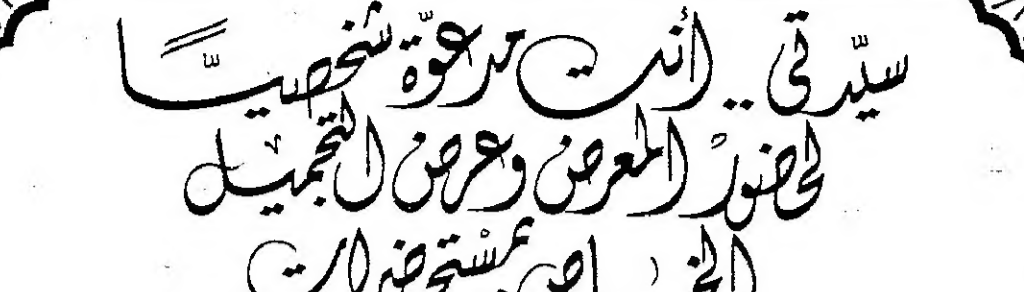 سيّدتي .. أنت مدعوّة شخصيّاً
لحضور المعرض وعرض التجميل
الخاص بمستحضرات